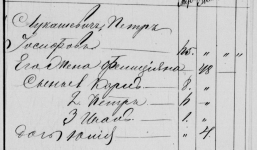 Лукашевичъ Петръ
Іосифовъ 46. "
Его жена Фелиціяна " 48
Сыновья Карлъ 8. "
2 Петръ 6 "
3 Иванъ 1. "
Дочь Юлія " 4